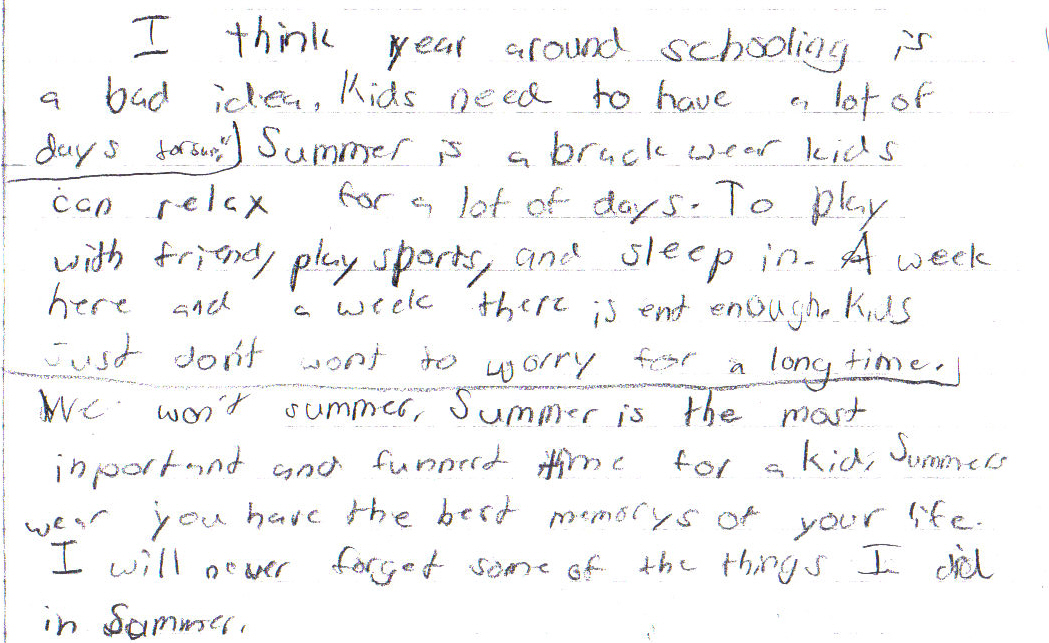 I think year around schooling is
a bad idea. Kids need to have a lot of
days for sun.") Summer is a brack wear kids
can relax for a lot of days. To play
with friend, play sports, and sleep in. A week
here and a week there is ent enough. Kids
Just don't wont to worry for a long time.
We won't summer. Summer is the most
inportant and funnerd time for a kid. Summers
wear you have the best memorys of your life.
I will never forget some of the things I did
in Summer.